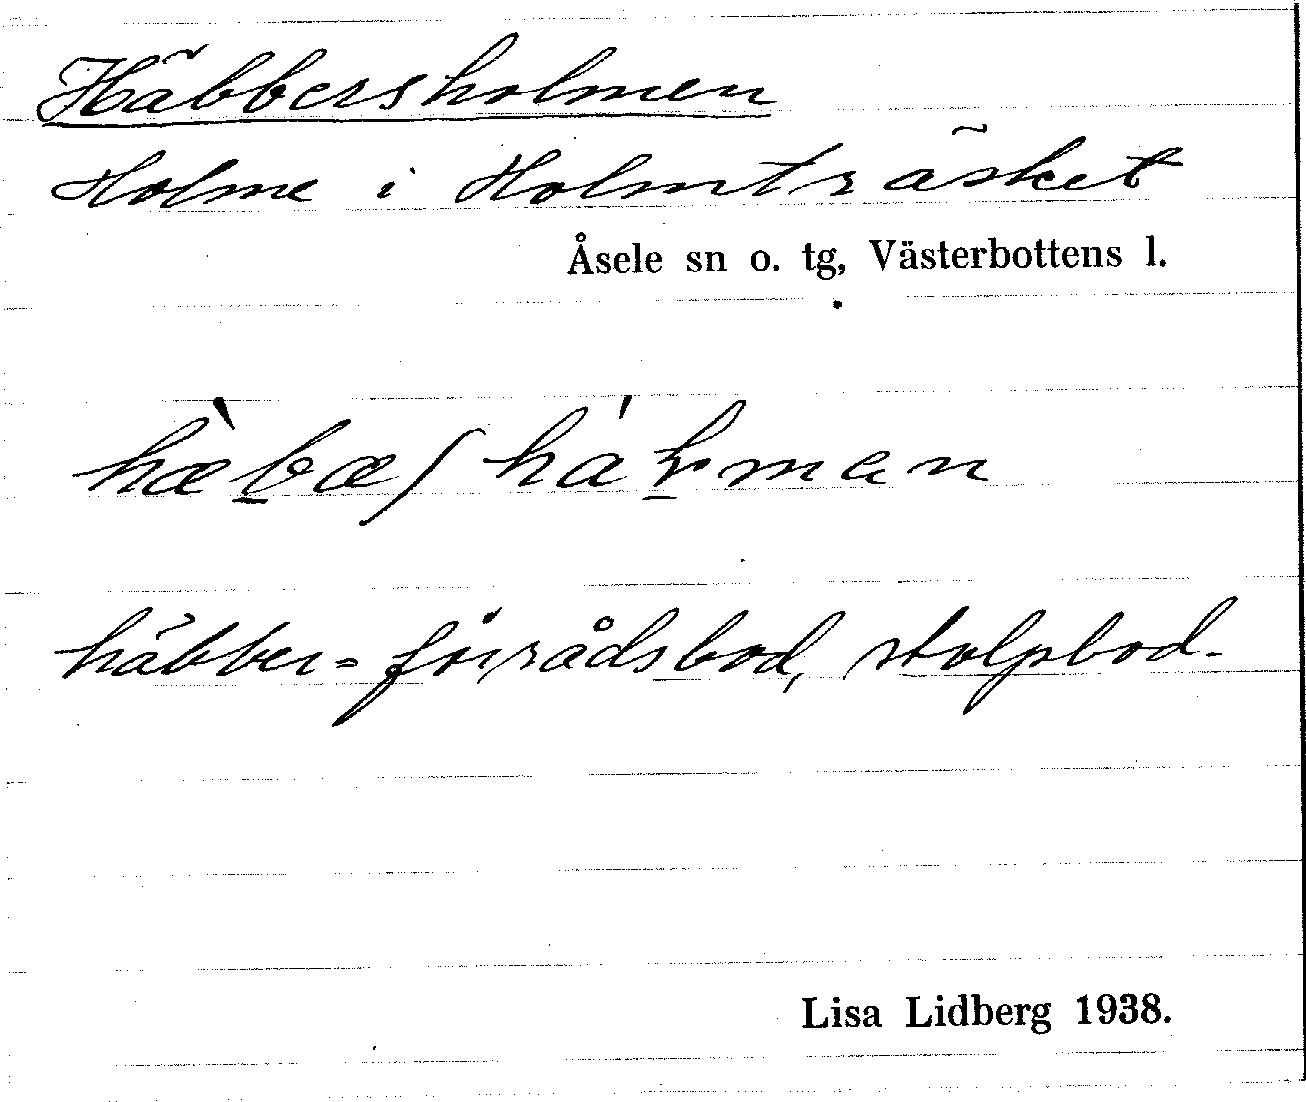 Häbbersholmen
Holme i Holmträsket
Åsele sn o. tg, Västerbottens l.
häbber = förrådsbod, stolpbod.
Lisa Lidberg 1938.